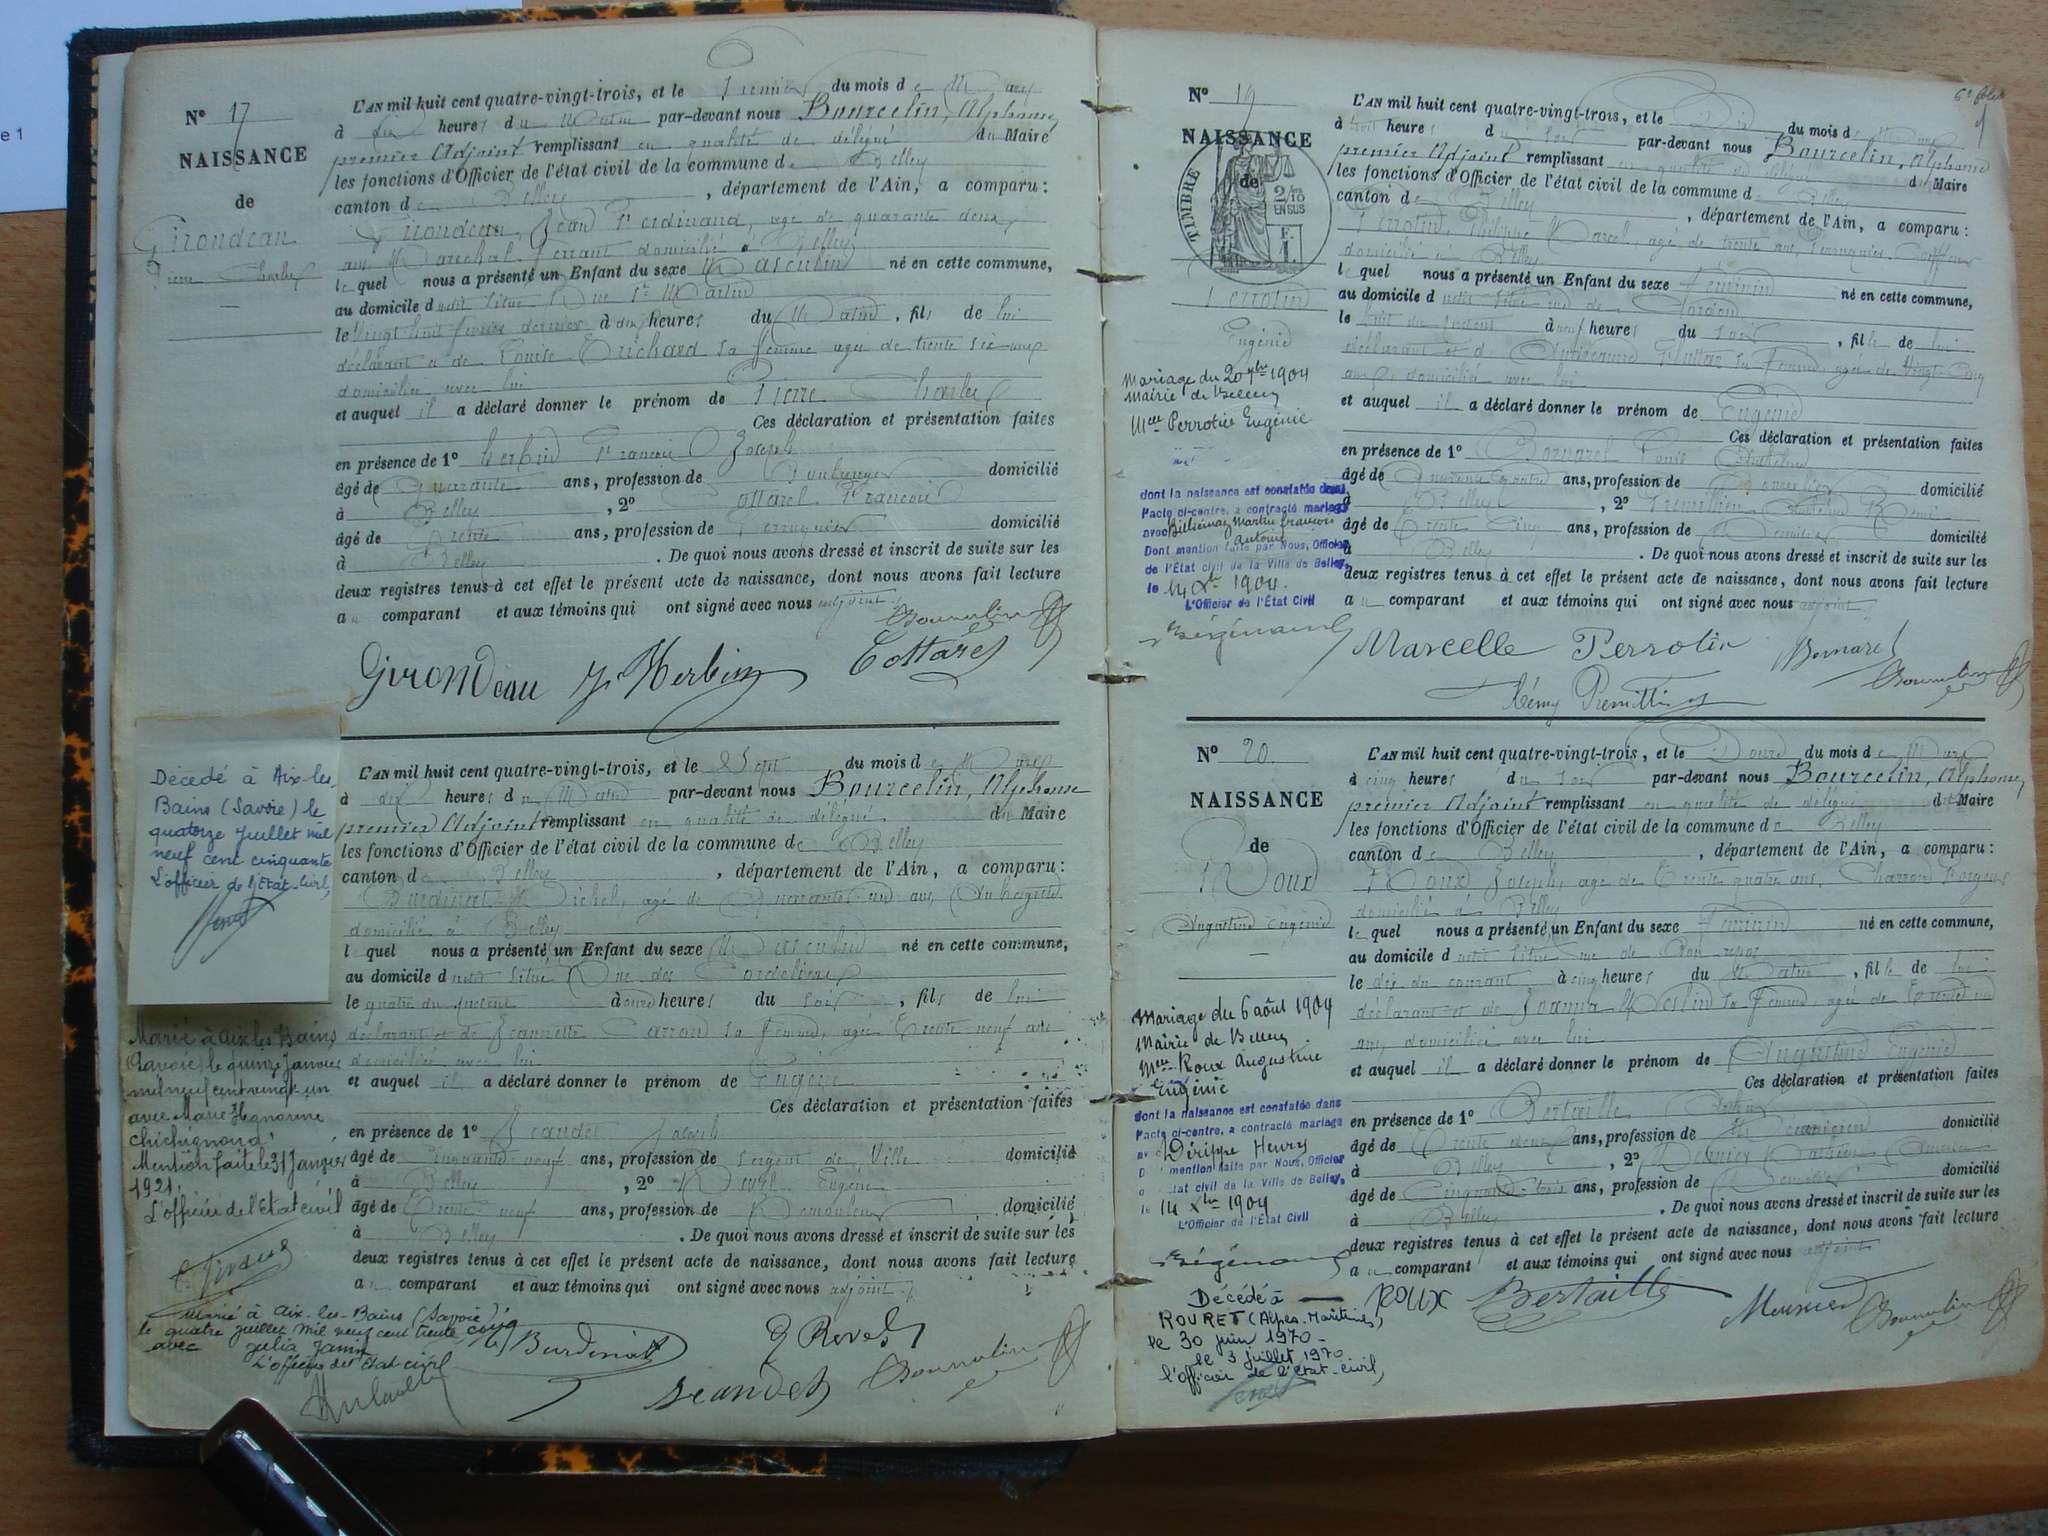 e 1
N° 17
NAISSANCE
de
Girondeau
Pierre Charles
L'AN mil huit cent quatre-vingt-trois, et le Premier du mois de Mars
à dix heures du Matin par-devant nous Bourcelin, Alphonse,
premier Adjoint remplissant en qualité de délégué du Maire
les fonctions d'Officier de l'état civil de la commune de Belley
canton de Belley, département de l'Ain, a comparu:
Girondeau, Jean Ferdinand, age de quarante deux
ans, Marechal ferrant domicilié à Belley
lequel nous a présenté un Enfant du sexe Masculin né en cette commune,
au domicile dudit situé Rue St Martin
le Vingt huit fevrier dernier à dix heures du Matin, fils de lui
déclarant et de Louise Trichard sa femme agee de trente six ans
domiciliée avec lui
et auquel il a déclaré donner le prénom de Pierre Charles
Ces déclaration et présentation faites
en présence de 1° Herbin François Joseph
âgé de Quarante ans, profession de Boulanger domicilié
à Belley, 2° Cottarel François
âgé de trente ans, profession de Perruquier domicilié
à Belley. De quoi nous avons dressé et inscrit de suite sur les
deux registres tenus à cet effet le présent acte de naissance, dont nous avons fait lecture
au comparant et aux témoins qui ont signé avec nous adjoint.
Bourcelin
Girondeau J Herbin Cottarel
Décédé à Aix-les-
Bains (Savoie) le
quatorze Juillet mil
neuf cent cinquante
L'officier de l'Etat-Civil,
Marié à Aix les Bains
(Savoie) le quinze Janvier
mil neuf cent vingt un
avec Marie Honorine
Chichignoud
Mention faite le 31 Janvier
1921.
L'officier de l'Etat civil
Marié à Aix-les-Bains (Savoie)
le quatre juillet mil neuf cent trente cinq
avec Julia Janin
L'officier de l'Etat-civil
L'AN mil huit cent quatre-vingt-trois, et le Sept du mois de Mars
à dix heures du Matin par-devant nous Bourcelin, Alphonse
premier Adjoint remplissant en qualité de délégué du Maire
les fonctions d'Officier de l'état civil de la commune de Belley
canton de Belley, département de l'Ain, a comparu:
Burdinat Michel, age de Quarante un ans, Aubergiste
domicilié à Belley
lequel nous a présenté un Enfant du sexe Masculin né en cette commune,
au domicile dudit situé Rue des Cordeliers
le quatre du présent à onze heures du soir, fils de lui
déclarant et de Jeannette Carron sa femme, agée Trente neuf ans
domiciliée avec lui
et auquel il a déclaré donner le prénom de Eugène
Ces déclaration et présentation faites
en présence de 1° Jeandet Joseph
âgé de Cinquante neuf ans, profession de Sergent de Ville domicilié
à Belley, 2° Revel Eugène
âgé de Trente neuf ans, profession de Remouleur domicilié
à Belley. De quoi nous avons dressé et inscrit de suite sur les
deux registres tenus à cet effet le présent acte de naissance, dont nous avons fait lecture
au comparant et aux témoins qui ont signé avec nous adjoint.
Burdinat E Revel
Jeandet Bourcelin
N° 19
NAISSANCE
de
TIMBRE
2/10
EN SUS
F.
1
Perrotin
Eugénie
Mariage du 20 7bre 1904
Mairie de Belley
Melle Perrotin Eugénie
dont la naissance est constatée dans
l'acte ci-contre, a contracté mariage
avec Billiémaz Marthe François
Antoine
Dont mention faite par Nous, Officier
de l'État civil de la Ville de Belley,
le 14 Xbre 1904.
L'Officier de l'État Civil
L'AN mil huit cent quatre-vingt-trois, et le Dix du mois de Mars
à trois heures du soir par-devant nous Bourcelin, Alphonse
premier Adjoint remplissant en qualité de délégué du Maire
les fonctions d'Officier de l'état civil de la commune de Belley
canton de Belley, département de l'Ain, a comparu:
Perrotin Philippe Marcel, agé de trente ans, Perruquier, Coiffeur
domicilié à Belley
lequel nous a présenté un Enfant du sexe Féminin né en cette commune,
au domicile dudit situé rue de
le huit du présent à neuf heures du soir, fille de lui
déclarant et d sa femme, agée de Vingt Cinq
ans, domiciliée avec lui
et auquel il a déclaré donner le prénom de Eugénie
Ces déclaration et présentation faites
en présence de 1° Bornarel Louis
âgé de Quarante quatre ans, profession de domicilié
à Belley, 2°
âgé de Trente Cinq ans, profession de domicilié
à Belley. De quoi nous avons dressé et inscrit de suite sur les
deux registres tenus à cet effet le présent acte de naissance, dont nous avons fait lecture
au comparant et aux témoins qui ont signé avec nous adjoint
Marcelle Perrotin Bornarel
Rémy Bourcelin
N° 20.
NAISSANCE
de
Roux
Augustine Eugénie
Mariage du 6 août 1904
Mairie de Belley
Melle Roux Augustine
Eugénie
dont la naissance est constatée dans
l'acte ci-contre, a contracté mariage
avec Dérippe Henry
mention faite par Nous, Officier
État civil de la Ville de Belley,
le 14 Xbre 1904
L'Officier de l'État Civil
Décédé à
ROURET (Alpes-Maritimes)
le 30 juin 1970 -
le 3 juillet 1970
l'officier de l'état-civil,
L'AN mil huit cent quatre-vingt-trois, et le Douze du mois de Mars
à cinq heures du soir par-devant nous Bourcelin, Alphonse,
premier Adjoint remplissant en qualité de délégué du Maire
les fonctions d'Officier de l'état civil de la commune de Belley
canton de Belley, département de l'Ain, a comparu:
Roux Joseph, age de Trente quatre ans, Charron Forgeur
domicilié à Belley
lequel nous a présenté un Enfant du sexe Féminin né en cette commune,
au domicile dudit situé rue de Bon repos
le dix du courant à cinq heures du Matin, fille de lui
déclarant et de Joanna Merlin sa femme, agée de Trente un
ans, domiciliée avec lui
et auquel il a déclaré donner le prénom de Augustine Eugénie
Ces déclaration et présentation faites
en présence de 1° Bertaille
âgé de Trente deux ans, profession de Mécanicien domicilié
à Belley, 2° Meunier
âgé de Cinquante trois ans, profession de domicilié
à Belley. De quoi nous avons dressé et inscrit de suite sur les
deux registres tenus à cet effet le présent acte de naissance, dont nous avons fait lecture
au comparant et aux témoins qui ont signé avec nous adjoint
Roux Bertaille Meunier Bourcelin